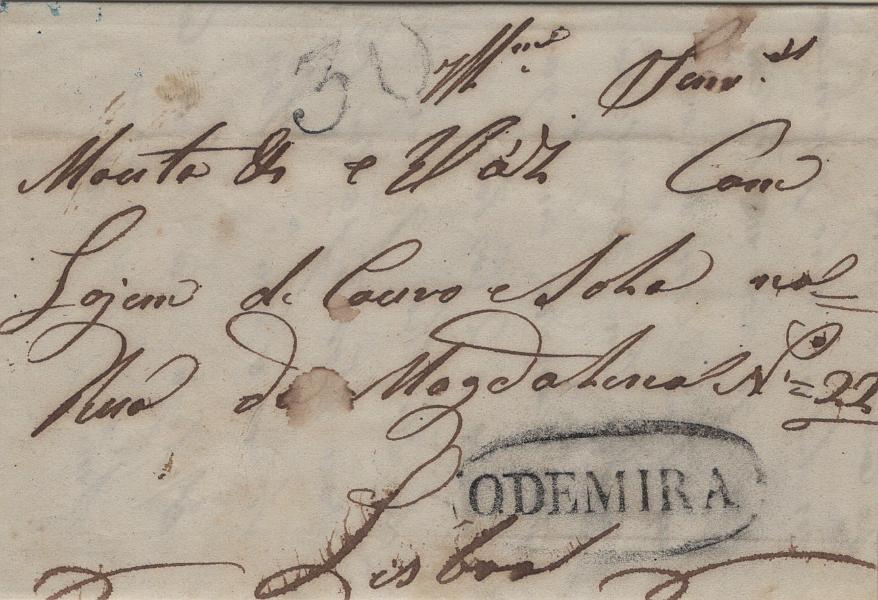 30 Illmos Senres
Mouta & e Váz Com
Lojem de Couro e Sola na
Rua da Magdalena No = 22
ODEMIRA
Lisboa